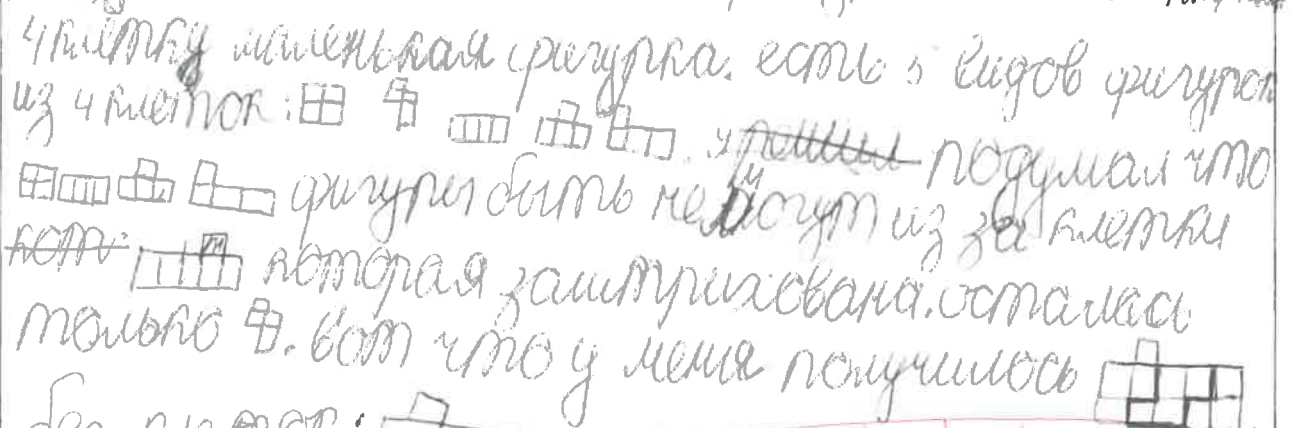 4 клетку маленькая фигурка. есть 5 видов фигурок
из 4 клеток: . я решил подумал что
фигуры быть не могут из за клетки
которая заштрихована. осталась
только . вот что у меня получилось